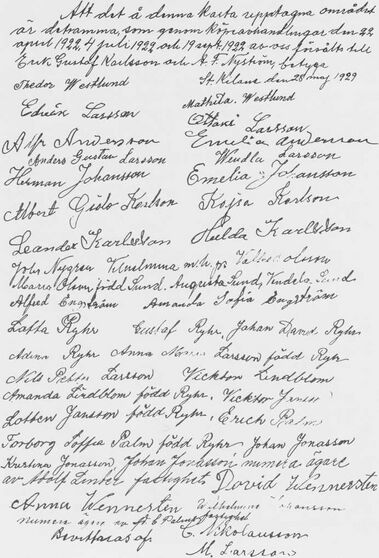 Att det å denna karta upptagna området
är detsamma, som genom köpeavhandlingar den 22
april 1922, 4 juli 1922 och 19 sept. 1922 av oss försålts till
Erik Gustaf Karlsson och A. F. Nyström, betyga
St. den 28 maj 1929
Theodor Westlund Mathilda Westlund
Edvin Larsson Larsson
Alfr Andersson Emilia Andersson
Anders Gustav Larsson Wendla Larsson
Herman Johansson Emelia Johansson
Albert Gido Karlson Kajsa Karlson
Leander Karlsson Hulda Karlsson
Nygren Vilhelmina
Maria Olsson, född Sund. Augusta Sund, Vendela Sund
Alfred Engström Amanda Sofia Engström
Lotta Ryhr Gustaf Ryhr, Johan David Ryhr
Adina Ryhr Anna Maria Larsson född Ryhr
Nils Petter Larsson Vicktor Lindblom
Amanda Lindblom född Ryhr, Vicktor
Lotten Jansson född Ryhr, Erick Palm
Torborg Soffia Palm född Ryhr Johan Jonasson
Kristina Jonasson, Johan Jonasson numera ägare
av Adolf fastighet David Wennersten
Anna Wennersten Wilhelmina Johansson
numera ägare av Palms fastighet
Bevittnas af: C. Nikolausson
M. Larsson